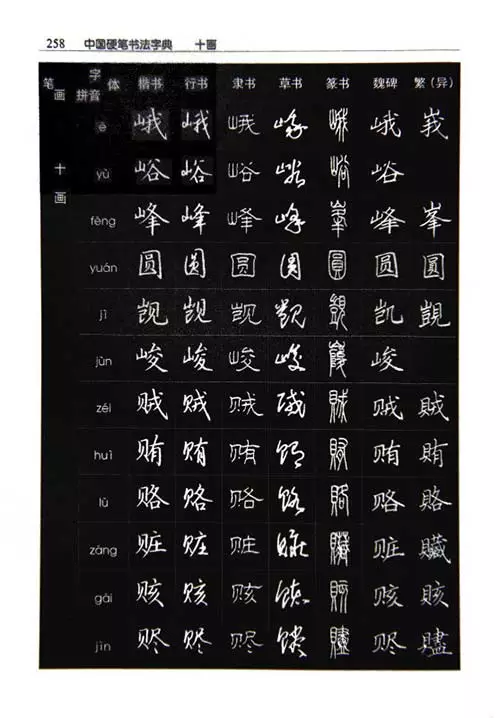 258 中国硬笔书法字典 十画
笔画 字体 拼音 楷书 行书 隶书 草书 篆书 魏碑 繁（异）
十画
é 峨 峨 峨 峨 峨 峨 峩
yù 峪 峪 峪 峪 峪 峪
fēng 峰 峰 峰 峰 峯 峰 峯
yuán 圆 圆 圆 圆 圓 圆 圓
jì 觊 觊 觊 觊 覬 觊 覬
jùn 峻 峻 峻 峻 峻 峻
zéi 贼 贼 贼 贼 賊 贼 賊
huì 贿 贿 贿 贿 賄 贿 賄
lù 赂 赂 赂 赂 賂 赂 賂
zāng 赃 赃 赃 赃 贜 赃 贜
gāi 赅 赅 赅 赅 賅 赅 賅
jìn 赆 赆 赆 赆 贐 赆 贐